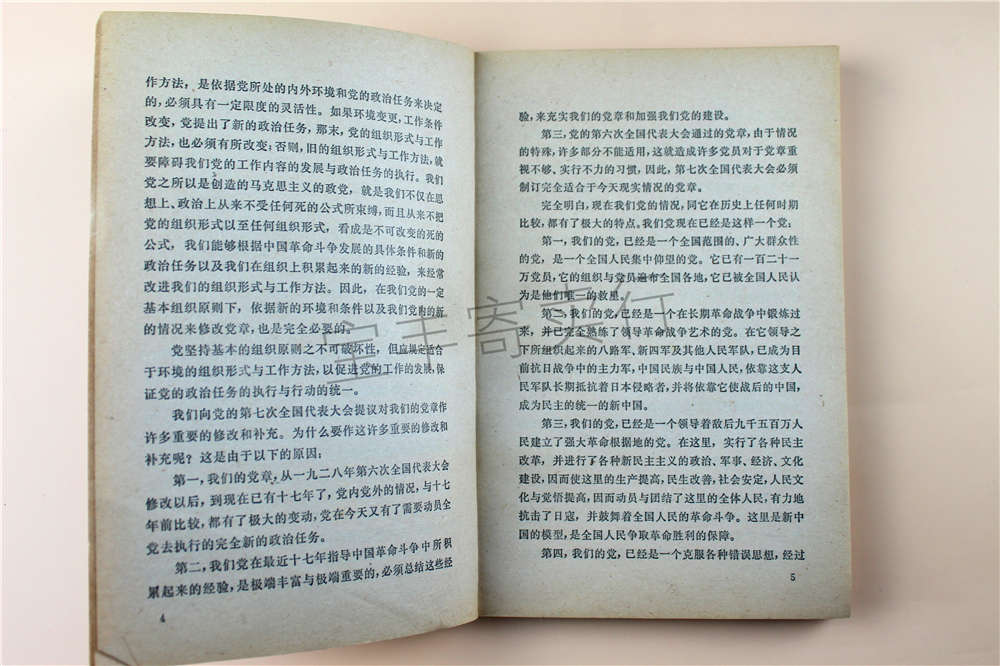 作方法，是依据党所处的内外环境和党的政治任务来决定
的，必须具有一定限度的灵活性。如果环境变更，工作条件
改变，党提出了新的政治任务，那末，党的组织形式与工作
方法，也必须有所改变；否则，旧的组织形式与工作方法，就
要障碍我们党的工作内容的发展与政治任务的执行。我们
党之所以是创造的马克思主义的政党，就是我们不仅在思
想上、政治上从来不受任何死的公式所束缚，而且从来不把
党的组织形式以至任何组织形式，看成是不可改变的死的
公式，我们能够根据中国革命斗争发展的具体条件和新的
政治任务以及我们在组织上积累起来的新的经验，来经常
改进我们的组织形式与工作方法。因此，在我们党的一定
基本组织原则下，依据新的环境和条件以及我们党内的新
的情况来修改党章，也是完全必要的。
党坚持基本的组织原则之不可破坏性，但应规定适合
于环境的组织形式与工作方法，以促进党的工作的发展，保
证党的政治任务的执行与行动的统一。
我们向党的第七次全国代表大会提议对我们的党章作
许多重要的修改和补充。为什么要作这许多重要的修改和
补充呢？这是由于以下的原因：
第一，我们的党章，从一九二八年第六次全国代表大会
修改以后，到现在已有十七年了，党内党外的情况，与十七
年前比较，都有了极大的变动，党在今天又有了需要动员全
党去执行的完全新的政治任务。
第二，我们党在最近十七年指导中国革命斗争中所积
累起来的经验，是极端丰富与极端重要的，必须总结这些经
4
验，来充实我们的党章和加强我们党的建设。
第三，党的第六次全国代表大会通过的党章，由于情况
的特殊，许多部分不能适用，这就造成许多党员对于党章重
视不够、实行不力的习惯，因此，第七次全国代表大会必须
制订完全适合于今天现实情况的党章。
完全明白，现在我们党的情况，同它在历史上任何时期
比较，都有了极大的特点。我们党现在已经是这样一个党：
第一，我们的党，已经是一个全国范围的、广大群众性
的党，是一个全国人民集中仰望的党。它已有一百二十一
万党员，它的组织与党员遍布全国各地，它已被全国人民认
为是他们唯一的救星。
第二，我们的党，已经是一个在长期革命战争中锻炼过
来，并已完全熟练了领导革命战争艺术的党。在它领导之
下所组织起来的八路军、新四军及其他人民军队，已成为目
前抗日战争中的主力军，中国民族与中国人民，依靠这支人
民军队长期抵抗着日本侵略者，并将依靠它使战后的中国，
成为民主的统一的新中国。
第三，我们的党，已经是一个领导着敌后九千五百万人
民建立了强大革命根据地的党。在这里，实行了各种民主
改革，并进行了各种新民主主义的政治、军事、经济、文化
建设，因而使这里的生产提高，民生改善，社会安定，人民文
化与觉悟提高，因而动员与团结了这里的全体人民，有力地
抗击了日寇，并鼓舞着全国人民的革命斗争。这里是新中
国的模型，是全国人民争取革命胜利的保障。
第四，我们的党，已经是一个克服各种错误思想，经过
5
宝丰寄卖行